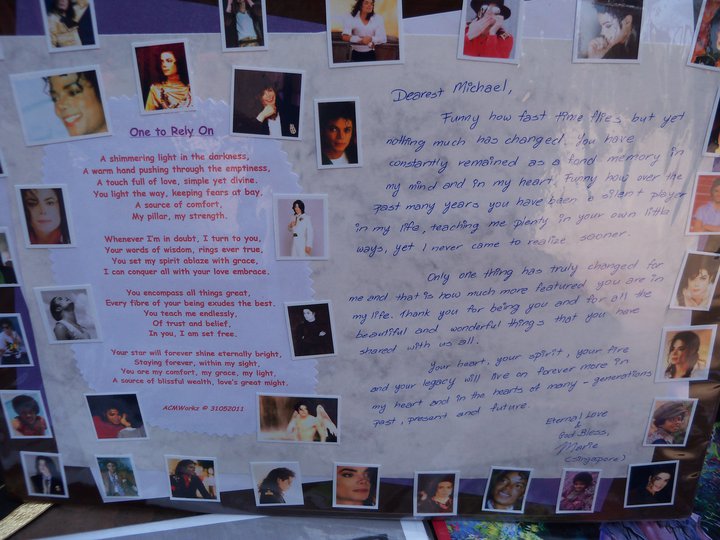 One to Rely On
A shimmering light in the darkness,
A warm hand pushing through the emptiness,
A touch full of love, simple yet divine.
You light the way, keeping fears at bay,
A source of comfort,
My pillar, my strength.
Whenever I'm in doubt, I turn to you,
Your words of wisdom, rings ever true,
You set my spirit ablaze with grace,
I can conquer all with your love embrace.
You encompass all things great,
Every fibre of your being exudes the best.
You teach me endlessly,
Of trust and belief,
In you, I am set free.
Your star will forever shine eternally bright,
Staying forever, within my sight,
You are my comfort, my grace, my light,
A source of blissful wealth, love's great might.
ACMWorkz @ 31052011
Dearest Michael,
Funny how fast time flies but yet
nothing much has changed. You have
constantly remained as a fond memory in
my mind and in my heart. Funny how over the
past many years you have been a silent player
in my life, teaching me plenty in your own little
ways, yet I never came to realize sooner.
Only one thing has truly changed for
me and that is how much more featured you are in
my life. Thank you for being you and for all the
beautiful and wonderful things that you have
shared with us all.
Your heart, your spirit, your fire
and your legacy will live on forever more in
my heart and in the hearts of many - generations
past, present and future.
Eternal Love
&
God Bless,
Marie
(Singapore)